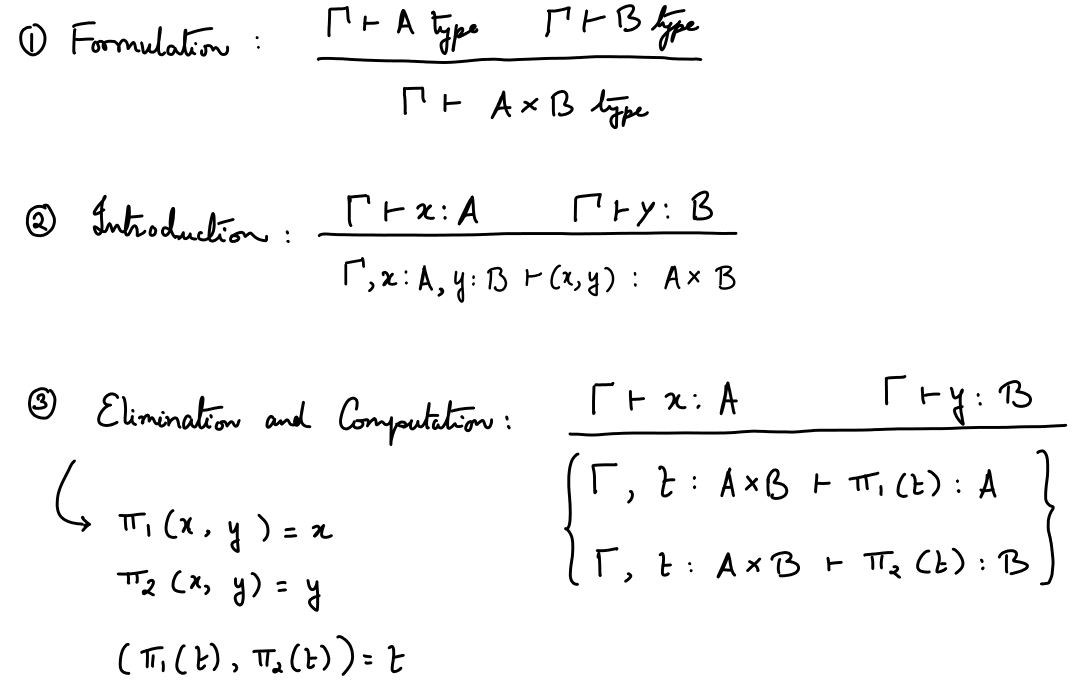 ① Formulation : Γ ⊢ A type Γ ⊢ B type
Γ ⊢ A × B type
② Introduction : Γ ⊢ x : A Γ ⊢ y : B
Γ, x : A, y : B ⊢ (x, y) : A × B
③ Elimination and Computation : Γ ⊢ x : A Γ ⊢ y : B
Γ, t : A × B ⊢ π₁(t) : A
π₁(x, y) = x
Γ, t : A × B ⊢ π₂(t) : B
π₂(x, y) = y
(π₁(t), π₂(t)) = t